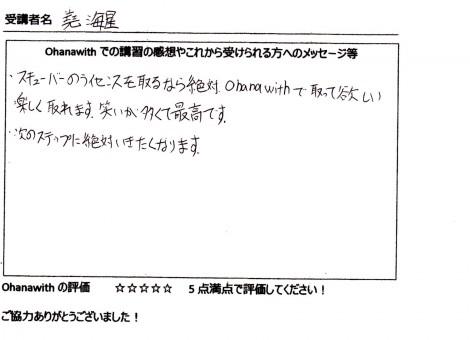 受講者名 堯 海星
Ohanawith での講習の感想やこれから受けられる方へのメッセージ等
・スキューバーのライセンスを取るなら絶対 Ohanawithで取って欲しい
楽しく取れます。笑いが多くて最高です。
・次のステップに絶対いきたくなります。
Ohanawith の評価 ☆☆☆☆☆ 5点満点で評価してください！
ご協力ありがとうございました！